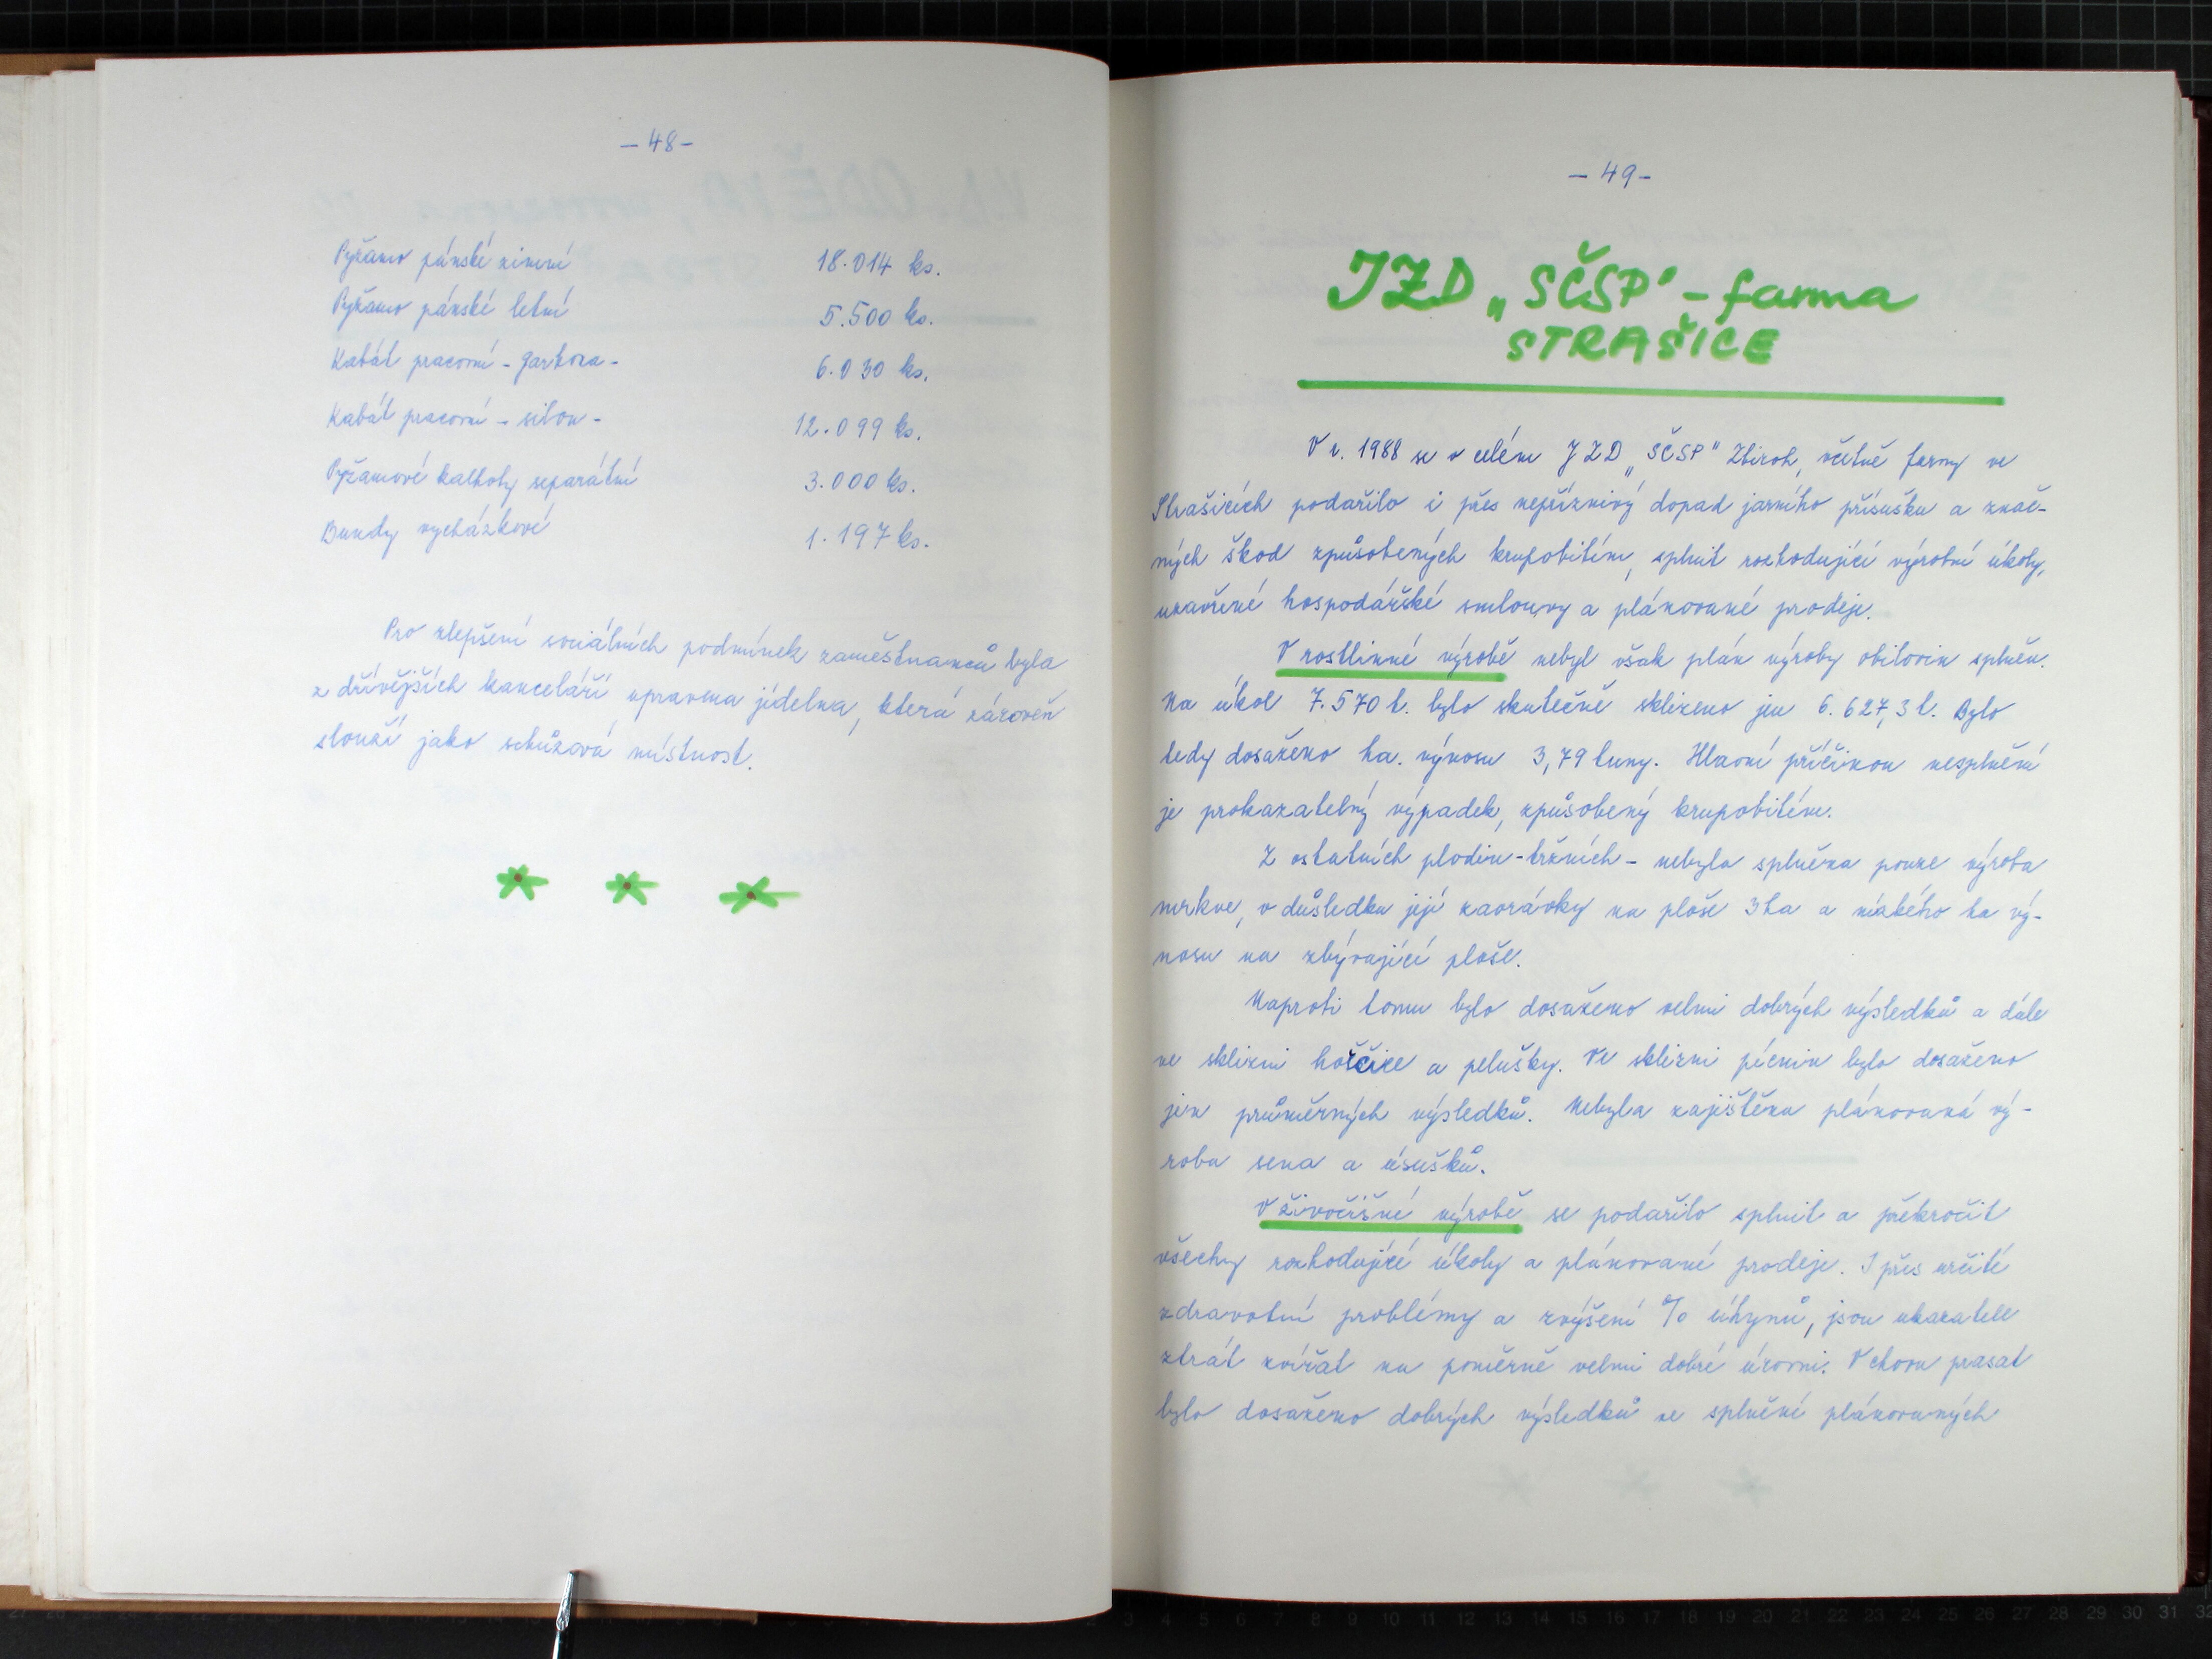 - 48 -
Pyžamo pánské zimní 18.014 ks.
Pyžamo pánské letní 5.500 ks.
Kabát pracovní - garkora - 6.030 ks.
Kabát pracovní - silon - 12.099 ks.
Pyžamové kalhoty separátní 3.000 ks.
Bundy vycházkové 1.197 ks.
Pro zlepšení sociálních podmínek zaměstnanců byla
z dřívějších kanceláří upravena jídelna, která zároveň
slouží jako schůzová místnost.
- 49 -
JZD „SČSP" - farma
STRAŠICE
V r. 1988 se v celém JZD „SČSP" Zbiroh, včetně farmy ve
Strašicích podařilo i přes nepříznivý dopad jarního přísušku a znač-
ných škod způsobených krupobitím, splnit rozhodující výrobní úkoly,
uzavřené hospodářské smlouvy a plánované prodeje.
V rostlinné výrobě nebyl však plán výroby obilovin splněn.
Na úkol 7.570 t. bylo skutečně sklizeno jen 6.627,3 t. Bylo
tedy dosaženo ha. výnosu 3,79 tuny. Hlavní příčinou nesplnění
je prokazatelný výpadek, způsobený krupobitím.
Z ostatních plodin - tržních - nebyla splněna pouze výroba
mrkve, v důsledku její zaorávky na ploše 3 ha a nízkého ha vý-
nosu na zbývající ploše.
Naproti tomu bylo dosaženo velmi dobrých výsledků a dále
ve sklizni hořčice a pelušky. Ve sklizni pícnin bylo dosaženo
jen průměrných výsledků. Nebyla zajištěna plánovaná vý-
roba sena a úsušků.
V živočišné výrobě se podařilo splnit a překročit
všechny rozhodující úkoly a plánované prodeje. I přes určité
zdravotní problémy a zvýšení % úhynů, jsou ukazatele
ztrát zvířat na poměrně velmi dobré úrovni. V chovu prasat
bylo dosaženo dobrých výsledků ve splnění plánovaných